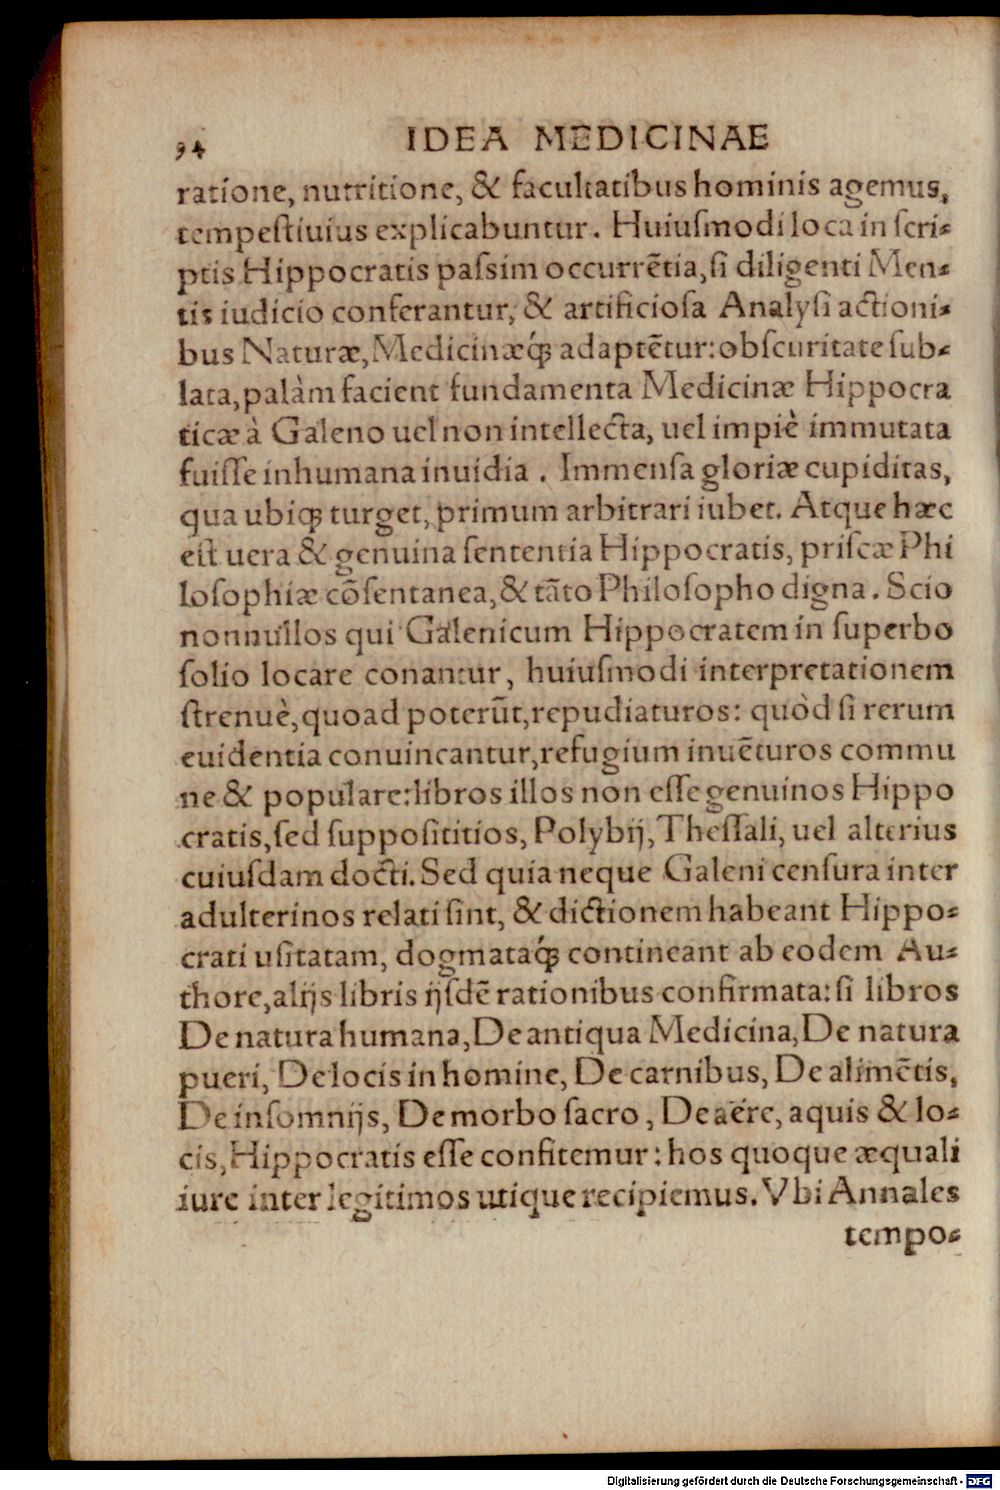 94 IDEA MEDICINAE
ratione, nutritione, & facultatibus hominis agemus,
tempeſtiuius explicabuntur. Huiuſmodi loca in ſcri-
ptis Hippocratis paſsim occurrẽtia, ſi diligenti Men-
tis iudicio conferantur, & artificioſa Analyſi actioni-
bus Naturæ, Medicinæq́; adaptẽtur: obſcuritate ſub-
lata, palàm facient fundamenta Medicinæ Hippocra
ticæ à Galeno uel non intellecta, uel impiè immutata
fuiſſe inhumana inuidia. Immenſa gloriæ cupiditas,
qua ubiq; turget, primum arbitrari iubet. Atque hæc
eſt uera & genuina ſententia Hippocratis, priſcæ Phi
loſophiæ cõſentanea, & tãto Philoſopho digna. Scio
nonnullos qui Galenicum Hippocratem in ſuperbo
ſolio locare conantur, huiuſmodi interpretationem
ſtrenuè, quoad poterũt, repudiaturos: quòd ſi rerum
euidentia conuincantur, refugium inuẽturos commu
ne & populare: libros illos non eſſe genuinos Hippo
cratis, ſed ſuppoſititios, Polybij, Theſſali, uel alterius
cuiuſdam docti. Sed quia neque Galeni cenſura inter
adulterinos relati ſint, & dictionem habeant Hippo-
crati uſitatam, dogmataq́; contineant ab eodem Au-
thore, alijs libris ijſdẽ rationibus confirmata: ſi libros
De natura humana, De antiqua Medicina, De natura
pueri, De locis in homine, De carnibus, De alimẽtis,
De inſomnijs, De morbo ſacro, De aëre, aquis & lo-
cis, Hippocratis eſſe confitemur: hos quoque æquali
iure inter legitimos utique recipiemus. Vbi Annales
tempo-
Digitalisierung gefördert durch die Deutsche Forschungsgemeinschaft - DFG